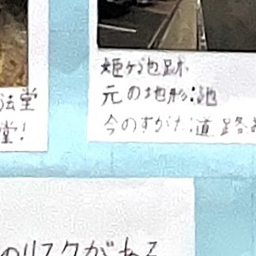 法堂
堂!
姫ヶ池跡
元の地形:池
今のすがた:道路
のリスクがある